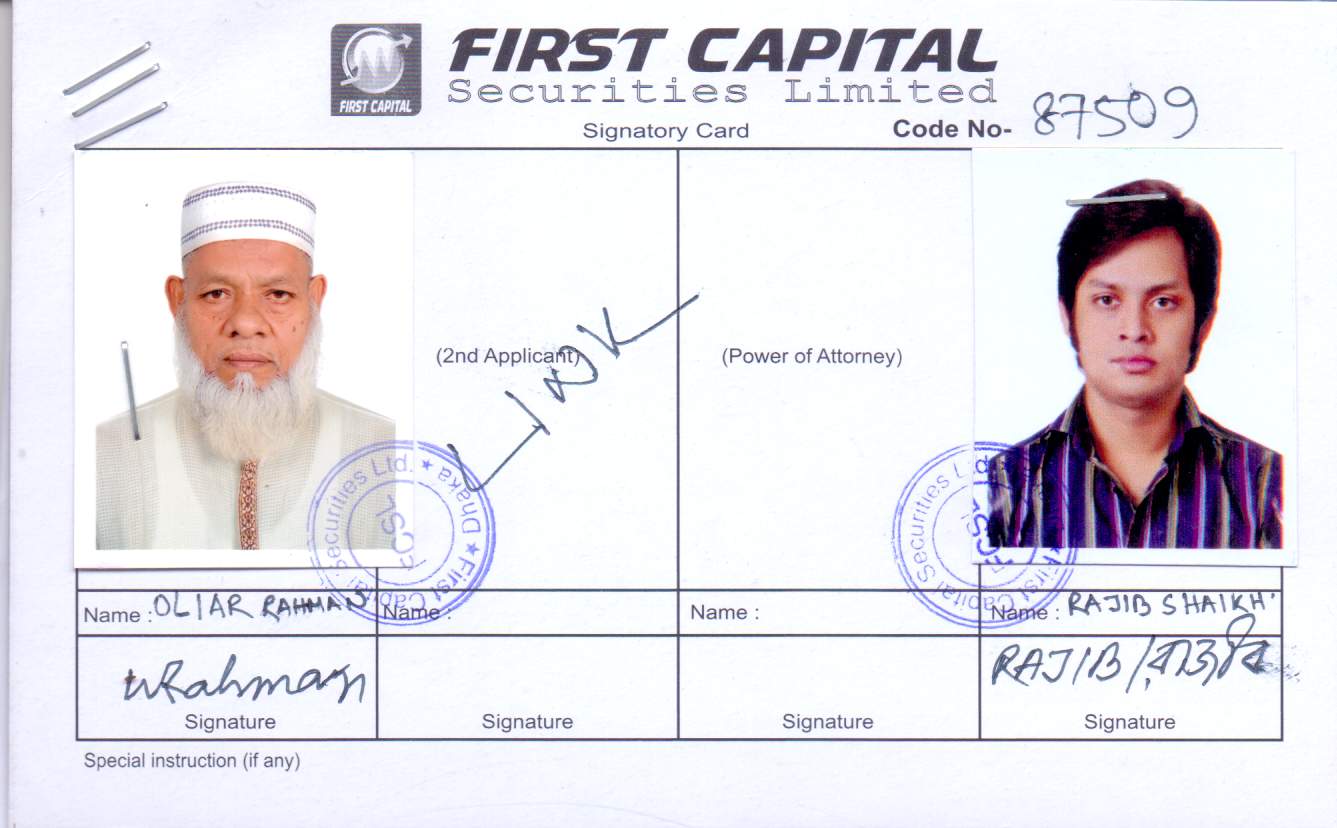 FIRST CAPITAL
FIRST CAPITAL
Securities Limited
Signatory Card
Code No- 87509
(2nd Applicant)
(Power of Attorney)
Securities Ltd. ★ Dhaka ★ First Capital
FCSL
First Capital Securities Ltd.
FCSL
Name : OLIAR RAHMAN
Name :
Name :
Name : RAJIB SHAIKH
Rahman
Signature
Signature
Signature
RAJIB / রাজিব
Signature
Special instruction (if any)